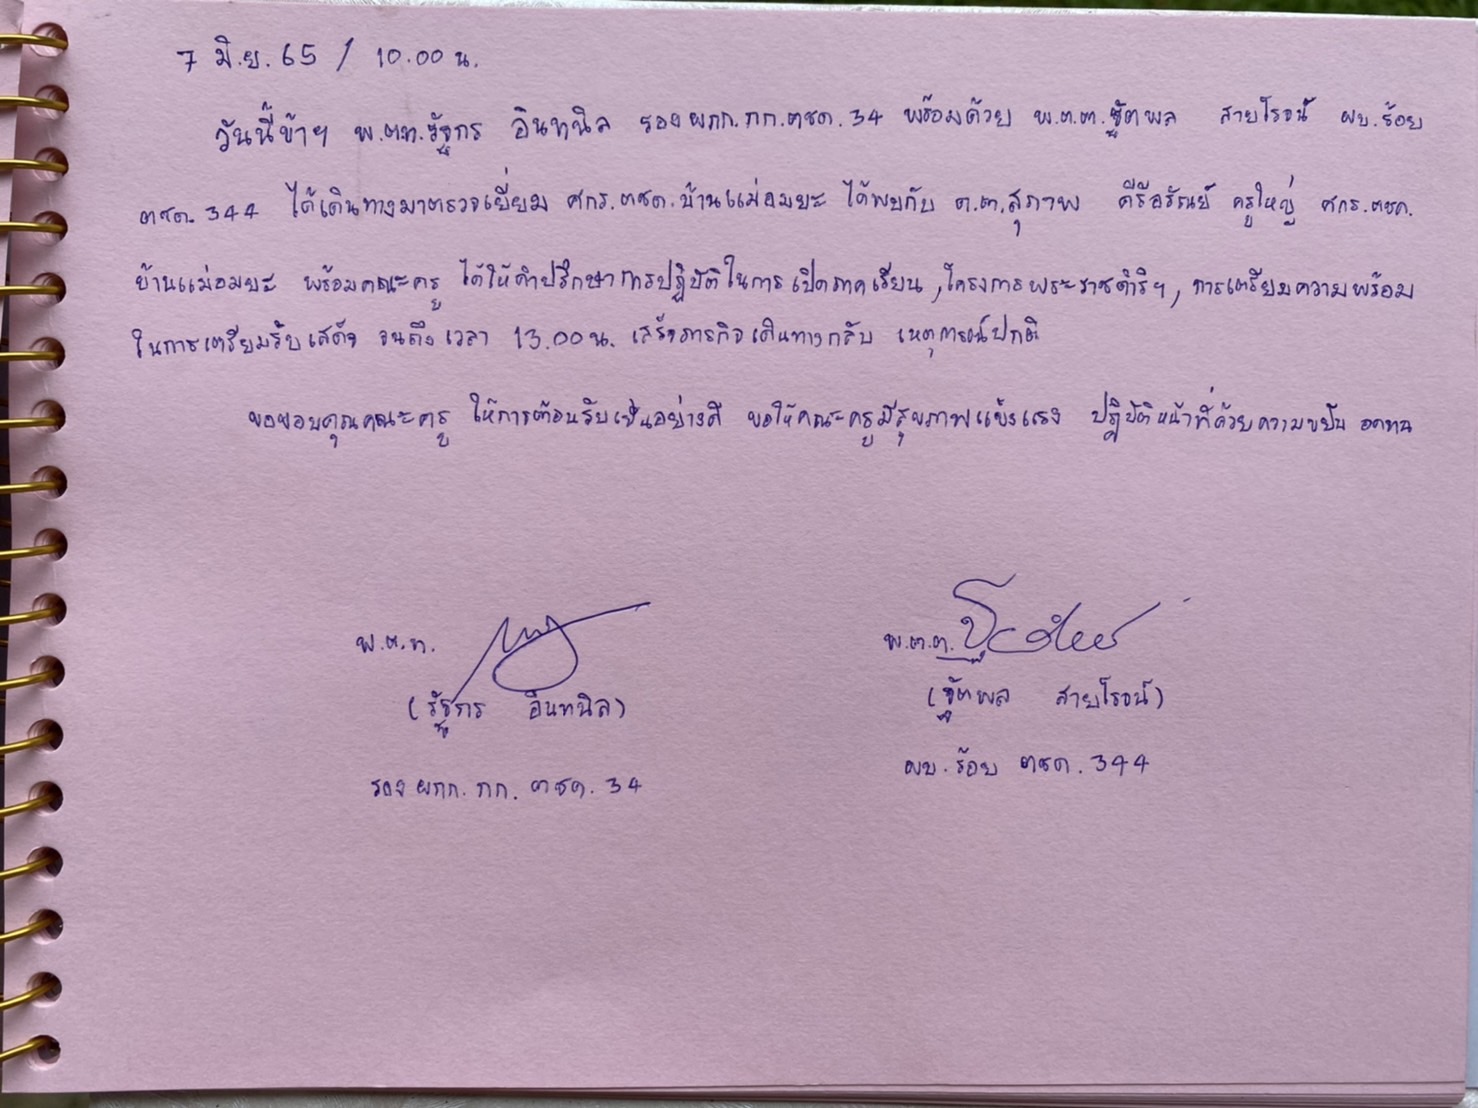 7 มิ.ย. 65 / 10.00 น.
วันนี้ข้าฯ พ.ต.ท.รัฐกร อินทนิล รอง ผกก.กก.ตชด.34 พร้อมด้วย พ.ต.ต.ฐิตพล สายโรจน์ ผบ.ร้อย
ตชด. 344 ได้เดินทางมาตรวจเยี่ยม ศกร.ตชด.บ้านแม่อมยะ ได้พบกับ ด.ต.สุภาพ คีรีอรัณย์ ครูใหญ่ ศกร.ตชด.
บ้านแม่อมยะ พร้อมคณะครู ได้ให้คำปรึกษาการปฏิบัติในการเปิดภาคเรียน ,โครงการพระราชดำริฯ, การเตรียมความพร้อม
ในการเตรียมรับเสด็จ จนถึงเวลา 13.00 น. เสร็จภารกิจเดินทางกลับ เหตุการณ์ปกติ
ขอขอบคุณคณะครู ให้การต้อนรับเป็นอย่างดี ขอให้คณะครูมีสุขภาพแข็งแรง ปฏิบัติหน้าที่ด้วยความขยัน อดทน
พ.ต.ท.
พ.ต.ต.
(รัฐกร อินทนิล)
(ฐิตพล สายโรจน์)
รอง ผกก. กก. ตชด. 34
ผบ.ร้อย ตชด. 344